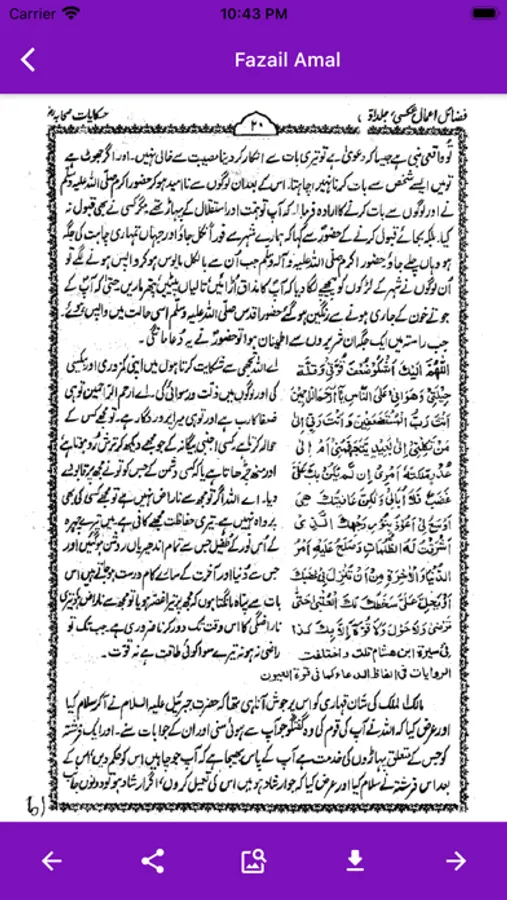 Carrier
10:43 PM
Fazail Amal
فضائل اعمال عکسی، جلد اوّل
۲۰
حکایات صحابہ رض
تو واقعی نبی ہے جیسا کہ دعویٰ ہے تو تیری بات سے انکار کر دینا مصیبت سے خالی نہیں۔ اور اگر جھوٹ ہے
تو میں ایسے شخص سے بات کرنا نہیں چاہتا۔ اس کے بعد ان لوگوں سے نا امید ہو کر حضور اکرم صلی اللہ علیہ وسلم
نے اور لوگوں سے بات کرنے کا ارادہ فرمایا کہ آپ تو ہمت اور استقلال کے پہاڑ تھے۔ مگر کسی نے بھی قبول نہ
کیا۔ بلکہ بجائے قبول کرنے کے حضورؐ سے کہا کہ ہمارے شہر سے فوراً نکل جاؤ اور جہاں تمہاری چاہت کی جگہ
ہو وہاں چلے جاؤ۔ حضور اکرم صلی اللہ علیہ وآلہ وسلم جب اُن سے بالکل مایوس ہو کر واپس ہونے لگے تو
اُن لوگوں نے شہر کے لڑکوں کو پیچھے لگا دیا کہ آپؐ کا مذاق اڑائیں تالیاں پیٹیں، پتھر ماریں حتیٰ کہ آپ کے
جوتے خون کے جاری ہونے سے رنگین ہو گئے حضور اقدس صلی اللہ علیہ وسلم اسی حالت میں واپس ہوئے۔
جب راستہ میں ایک جگہ ان شریروں سے اطمینان ہوا تو حضورؐ نے یہ دعا مانگی۔
اللّٰهُمَّ اِلَيْكَ اَشْكُوْ ضُعْفَ قُوَّتِيْ وَقِلَّةَ
حِيْلَتِيْ وَهَوَانِيْ عَلَى النَّاسِ يَا اَرْحَمَ الرَّاحِمِيْنَ
اَنْتَ رَبُّ الْمُسْتَضْعَفِيْنَ وَاَنْتَ رَبِّيْ اِلٰى
مَنْ تَكِلُنِيْ اِلٰى بَعِيْدٍ يَتَجَهَّمُنِيْ اَمْ اِلٰى
عَدُوٍّ مَلَّكْتَهٗ اَمْرِيْ اِنْ لَّمْ يَكُنْ بِكَ عَلَيَّ
غَضَبٌ فَلَا اُبَالِيْ وَلٰكِنْ عَافِيَتُكَ هِيَ
اَوْسَعُ لِيْ اَعُوْذُ بِنُوْرِ وَجْهِكَ الَّذِيْ
اَشْرَقَتْ لَهُ الظُّلُمَاتُ وَصَلُحَ عَلَيْهِ اَمْرُ
الدُّنْيَا وَالْاٰخِرَةِ مِنْ اَنْ تُنْزِلَ بِيْ غَضَبَكَ
اَوْ يَحِلَّ عَلَيَّ سَخَطُكَ لَكَ الْعُتْبٰى حَتّٰى
تَرْضٰى وَلَا حَوْلَ وَلَا قُوَّةَ اِلَّا بِكَ كذا
في سيرة ابن هشام قلت واختلفت
الروايات في الفاظ الدعاء كما في قرة العيون
اے اللہ تجھی سے شکایت کرتا ہوں میں اپنی کمزوری اور بیکسی
کی اور لوگوں میں ذلت و رسوائی کی۔ اے ارحم الراحمین تو ہی
ضعفا کا رب ہے اور تو ہی میرا پروردگار ہے۔ تو مجھے کس کے
حوالہ کرتا ہے کسی اجنبی بیگانہ کے جو مجھے دیکھ کر ترش رو ہوتا ہے
اور منھ چڑھاتا ہے یا کسی دشمن کے جس کو تو نے مجھ پر قابو دے
دیا۔ اے اللہ اگر تو مجھ سے ناراض نہیں ہے تو مجھے کسی کی بھی
پرواہ نہیں ہے۔ تیری حفاظت مجھے کافی ہے میں تیرے چہرہ
کے اُس نور کے طفیل جس سے تمام اندھیریاں روشن ہو گئیں اور
جس سے دُنیا اور آخرت کے سارے کام درست ہو جاتے ہیں اس
بات سے پناہ مانگتا ہوں کہ مجھ پر تیرا غصہ ہو یا تو مجھ سے ناراض ہو تیری
ناراضگی کا اس وقت تک دور کرنا ضروری ہے جب تک تو
راضی نہ ہو نہ تیرے سوا کوئی طاقت ہے نہ قوت۔
مالک الملک کی شانِ قہاری کو اس پر جوش آنا ہی تھا کہ حضرت جبرئیل علیہ السلام نے آکر سلام کیا
اور عرض کیا کہ اللہ نے آپ کی قوم کی وہ گفتگو جو آپ سے ہوئی سنی اور ان کے جوابات سنے۔ اور ایک فرشتہ
کو جس کے متعلق پہاڑوں کی خدمت ہے آپ کے پاس بھیجا ہے کہ آپ جو چاہیں اس کو حکم دیں، اس کے
بعد اس فرشتہ نے سلام کیا اور عرض کیا کہ جو ارشاد ہو میں اس کی تعمیل کروں، اگر ارشاد ہو تو دونوں جانب